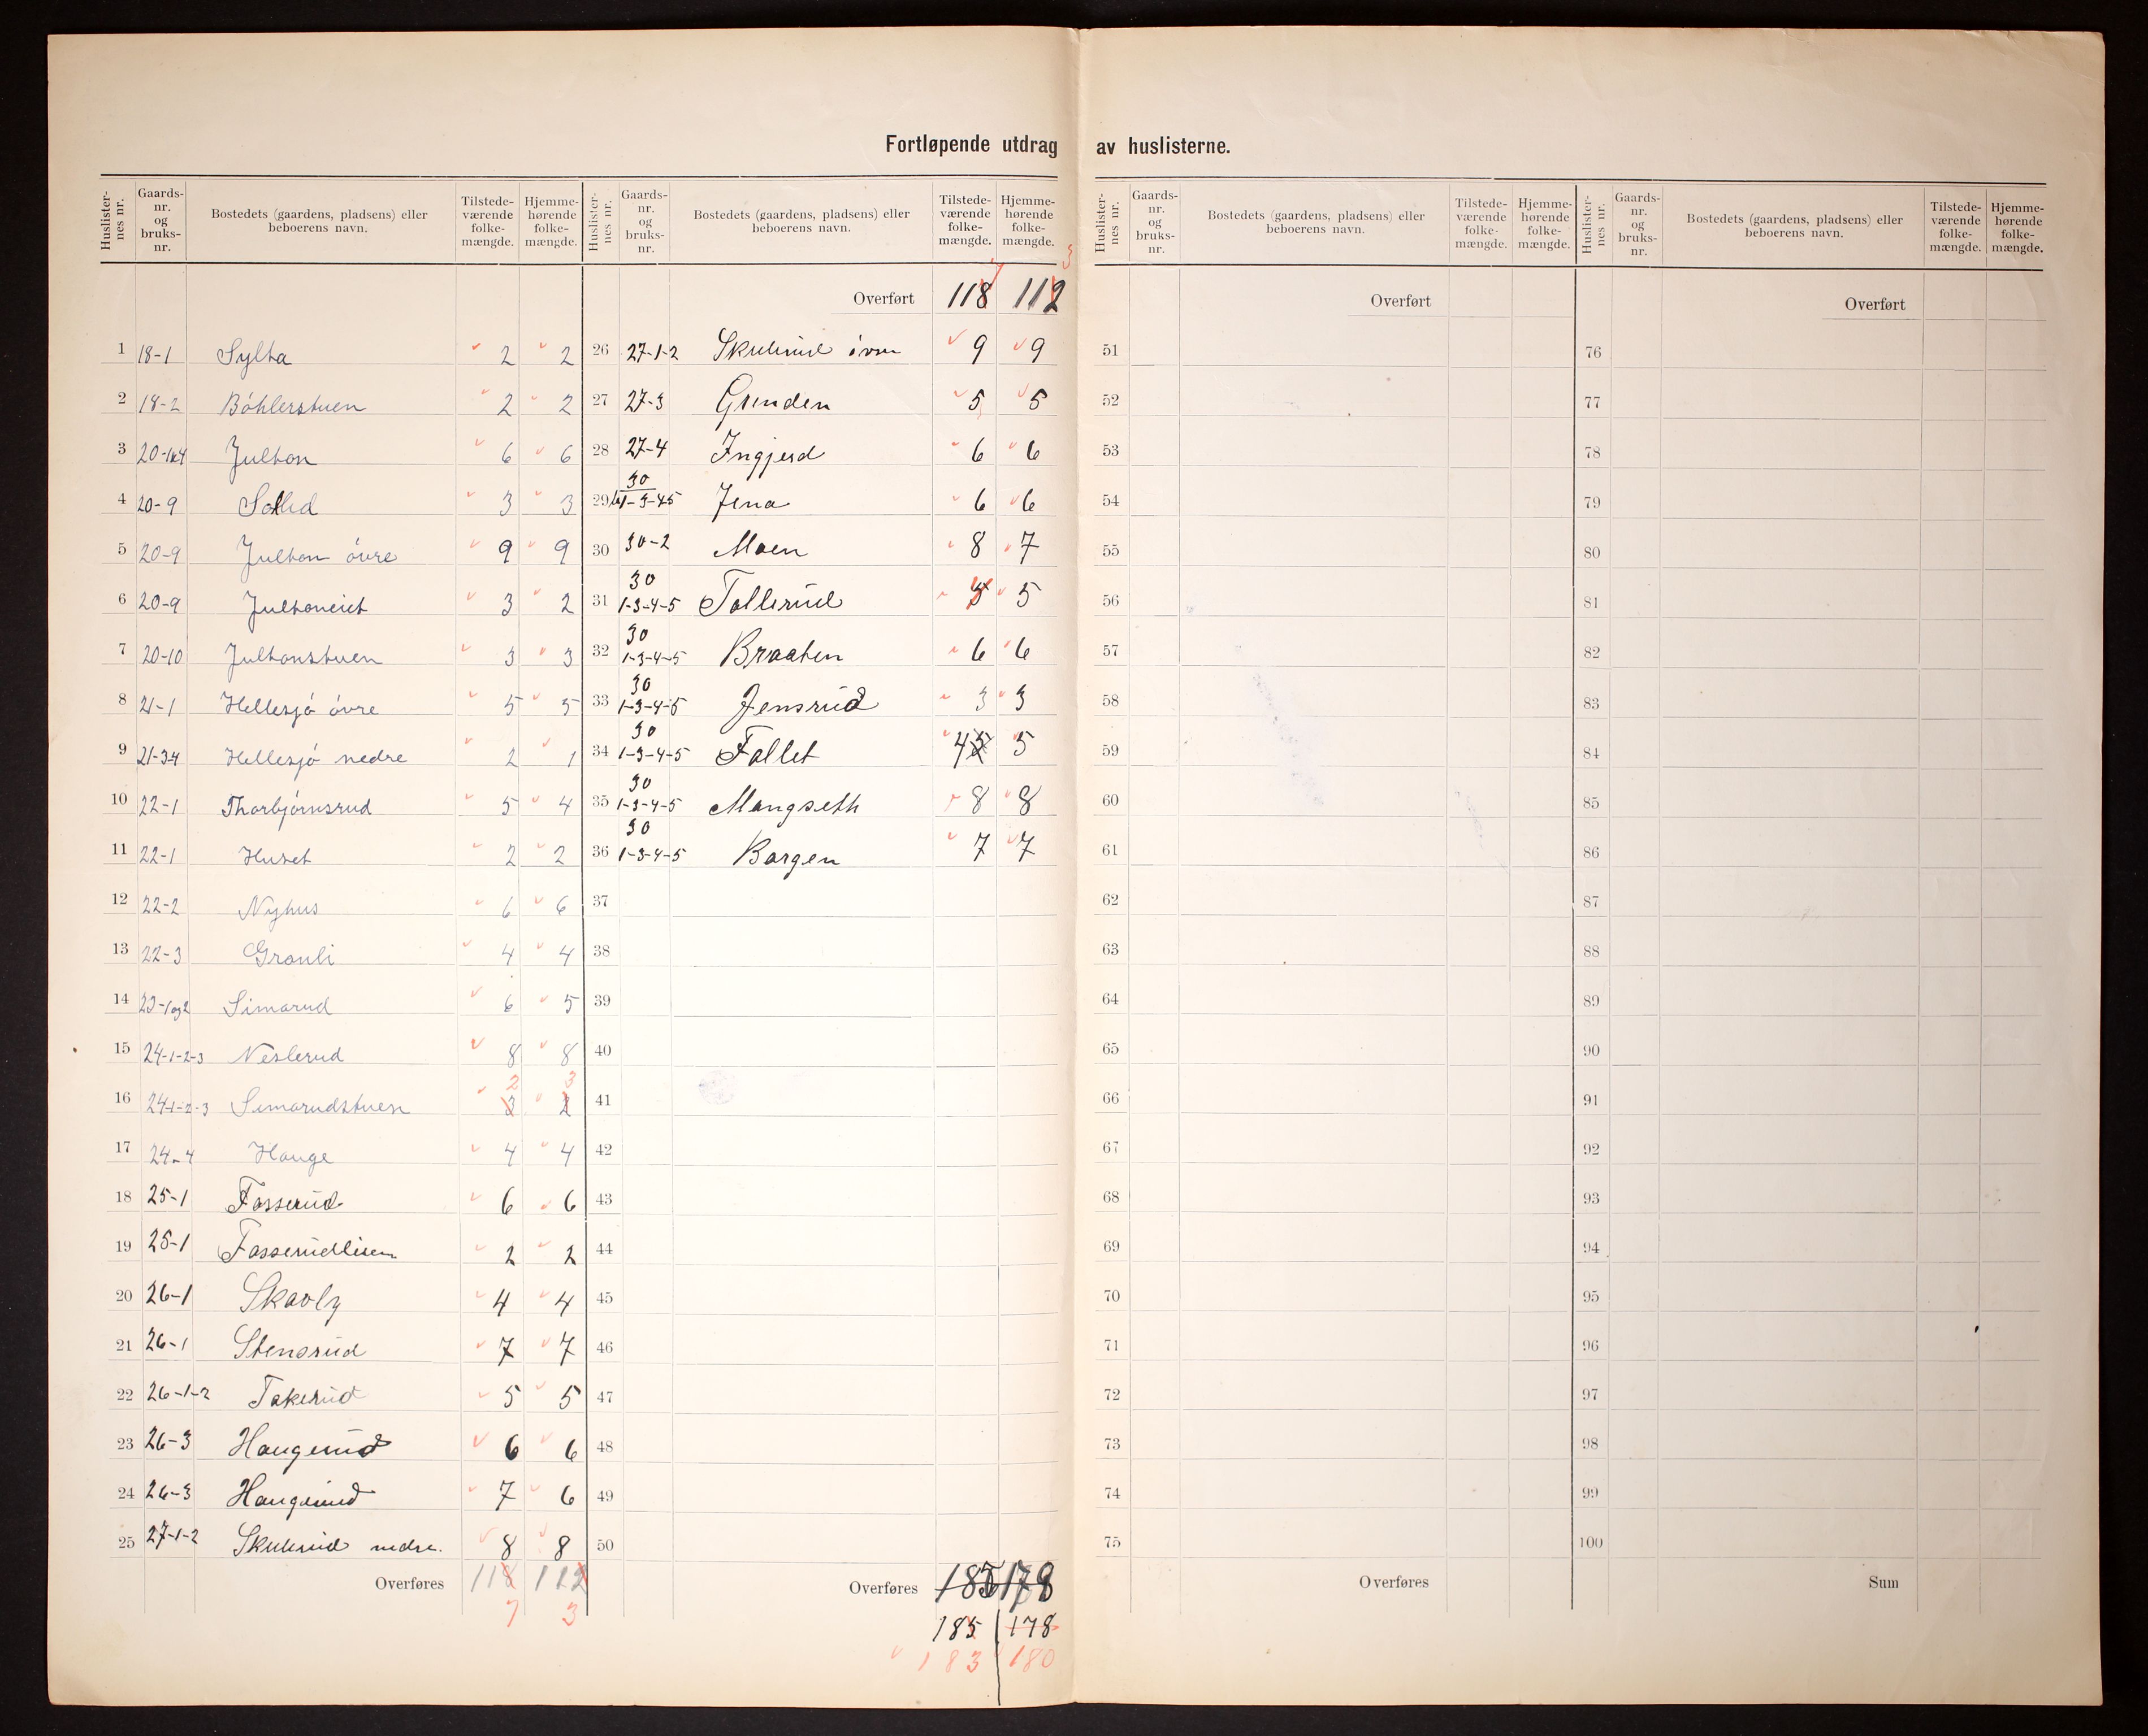 Fortløpende utdrag av huslisterne.
Huslisternes nr. Gaards-nr. og bruks-nr. Bostedets (gaardens, pladsens) eller beboerens navn. Tilstede-værende folke-mængde. Hjemme-hørende folke-mængde.
1 18-1 Sylta 2 2
2 18-2 Böhlerstuen 2 2
3 20-1 Julton 6 6
4 20-9 Sollid 3 3
5 20-9 Julton övre 9 9
6 20-9 Jultoneiet 3 2
7 20-10 Jultonstuen 3 3
8 21-1 Hellesjö övre 5 5
9 21-34 Hellesjö nedre 2 1
10 22-1 Thorbjörnsrud 5 4
11 22-1 Huset 2 2
12 22-2 Nyhus 6 6
13 22-3 Granli 4 4
14 23-1og2 Simarud 6 5
15 24-1-2-3 Neslerud 8 8
2 3
16 24-1-2-3 Simarudstuen 3 2
17 24-4 Hauge 4 4
18 25-1 Fosserud 6 6
19 25-1 Fosserudlien 2 2
20 26-1 Skavly 4 4
21 26-1 Stensrud 7 7
22 26-1-2 Takerud 5 5
23 26-3 Haugerud 6 6
24 26-3 Haugerud 7 6
25 27-1-2 Skulerud nedre. 8 8
Overføres 118 112
7 3
Huslisternes nr. Gaards-nr. og bruks-nr. Bostedets (gaardens, pladsens) eller beboerens navn. Tilstede-værende folke-mængde. Hjemme-hørende folke-mængde.
7 3
Overført 118 112
26 27-1-2 Skulerud övre 9 9
27 27-3 Grinden 5 5
28 27-4 Ingjerd 6 6
30
29 1-3-45 Jena 6 6
30 30-2 Moen 8 7
30
31 1-3-4-5 Tollerud 5
30
32 1-3-4-5 Braaten 6 6
30
33 1-3-4-5 Jensrud 3 3
30
34 1-3-4-5 Fallet 4 5 5
30
35 1-3-4-5 Mangseth 8 8
30
36 1-3-4-5 Borgen 7 7
37
38
39
40
41
42
43
44
45
46
47
48
49
50
Overføres 185 178
185 178
183 180
Huslisternes nr. Gaards-nr. og bruks-nr. Bostedets (gaardens, pladsens) eller beboerens navn. Tilstede-værende folke-mængde. Hjemme-hørende folke-mængde.
Overført
51
52
53
54
55
56
57
58
59
60
61
62
63
64
65
66
67
68
69
70
71
72
73
74
75
Overføres
Huslisternes nr. Gaards-nr. og bruks-nr. Bostedets (gaardens, pladsens) eller beboerens navn. Tilstede-værende folke-mængde. Hjemme-hørende folke-mængde.
Overført
76
77
78
79
80
81
82
83
84
85
86
87
88
89
90
91
92
93
94
95
96
97
98
99
100
Sum